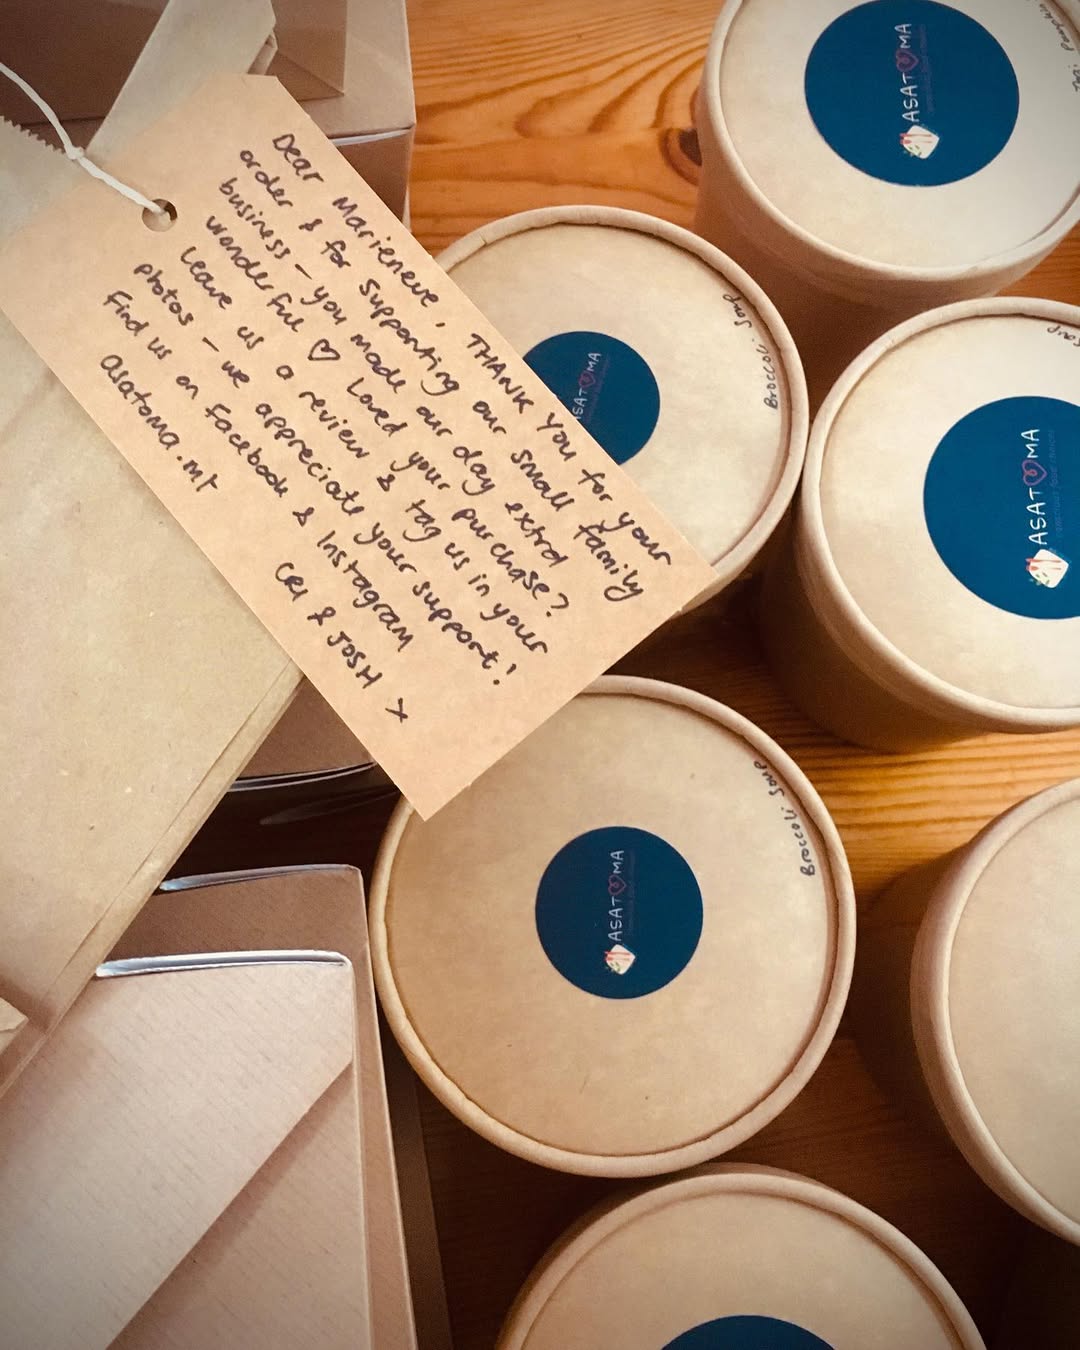 Dear Marieneve, THANK YOU for your
order & for supporting our small family
business - you made our day extra
wonderful ♡ Loved your purchase?
Leave us a review & tag us in your
photos - we appreciate your support!
Find us on Facebook & Instagram
asatoma.mt
CRI & JOSH x
ASATOMA
Broccoli Soup
ASATOMA
Soup
ASATOMA
Broccoli Soup
ASATOMA